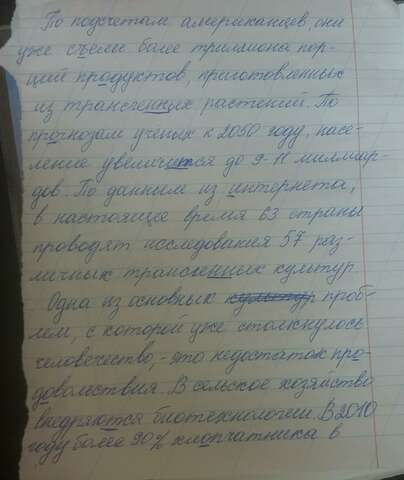 По подсчетам американцев, они
уже съели более триллиона пор-
ций продуктов, приготовленных
из трансгенных растений. По
прогнозам ученых к 2050 году, насе-
ление увеличится до 9-11 миллиар-
дов. По данным из интернета,
в настоящее время 63 страны
проводят исследования 57 раз-
личных трансгенных культур.
Одна из основных культур проб-
лем, с которой уже столкнулось
человечество, - это недостаток про-
довольствия. В сельское хозяйство
внедряются биотехнологии. В 2010
году более 90% хлопчатника в